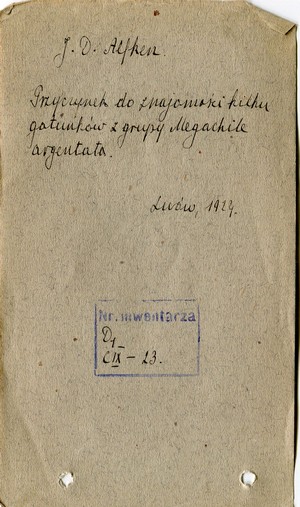 J. D. Alfken.
Przyczynek do znajomości kilku
gatunków z grupy Megachile
argentata.
Lwów, 1924.
Nr. inwentarza
D1
CIX – 23.